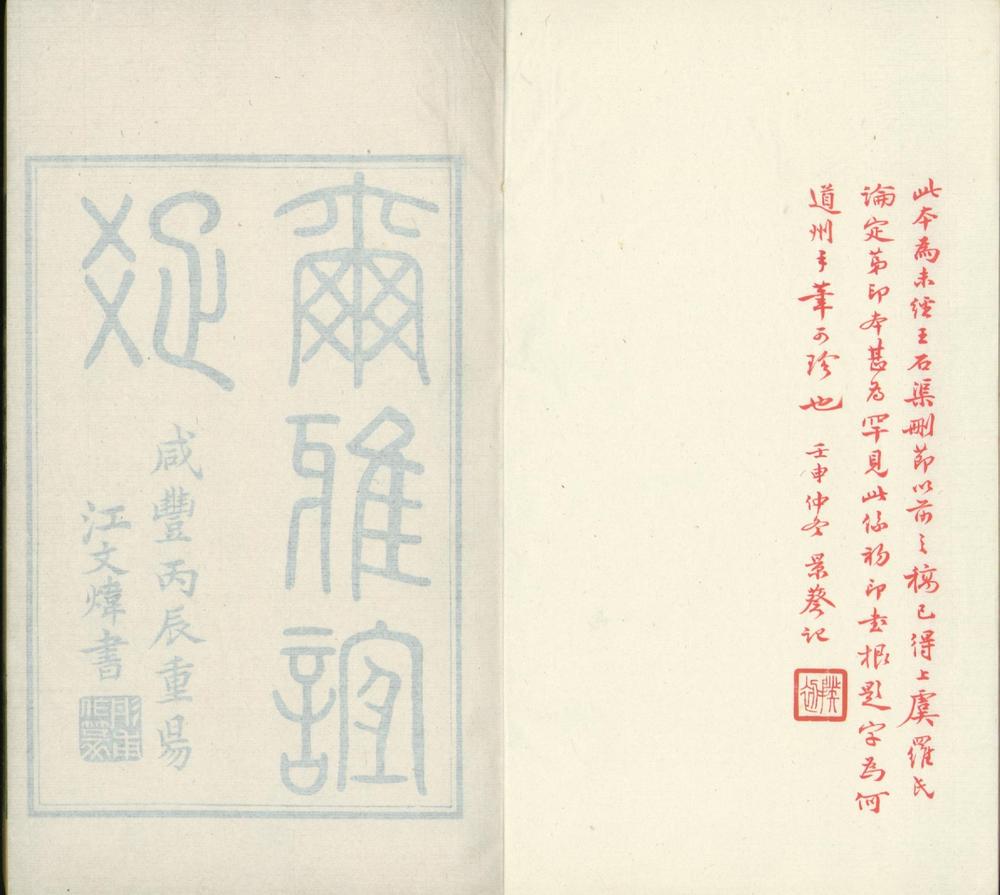 此本為未經王石渠刪節以前之稿已得上虞羅氏
論定第印本甚為罕見此係初印書根題字為何
道州手筆可珍也 壬申仲冬景葵記
爾雅誼
𤕟
咸豐丙辰重昜
江文煒書